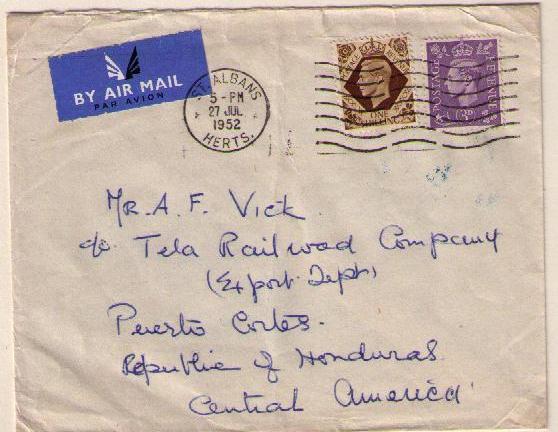 BY AIR MAIL
PAR AVION
ST. ALBANS
5 - PM
27 JUL
1952
HERTS.
POSTAGE REVENUE
ONE
3D
Mr. A. F. Vick
c/o Tela Railroad Company
(Export Dept)
Puerto Cortes.
Republic of Honduras
Central America